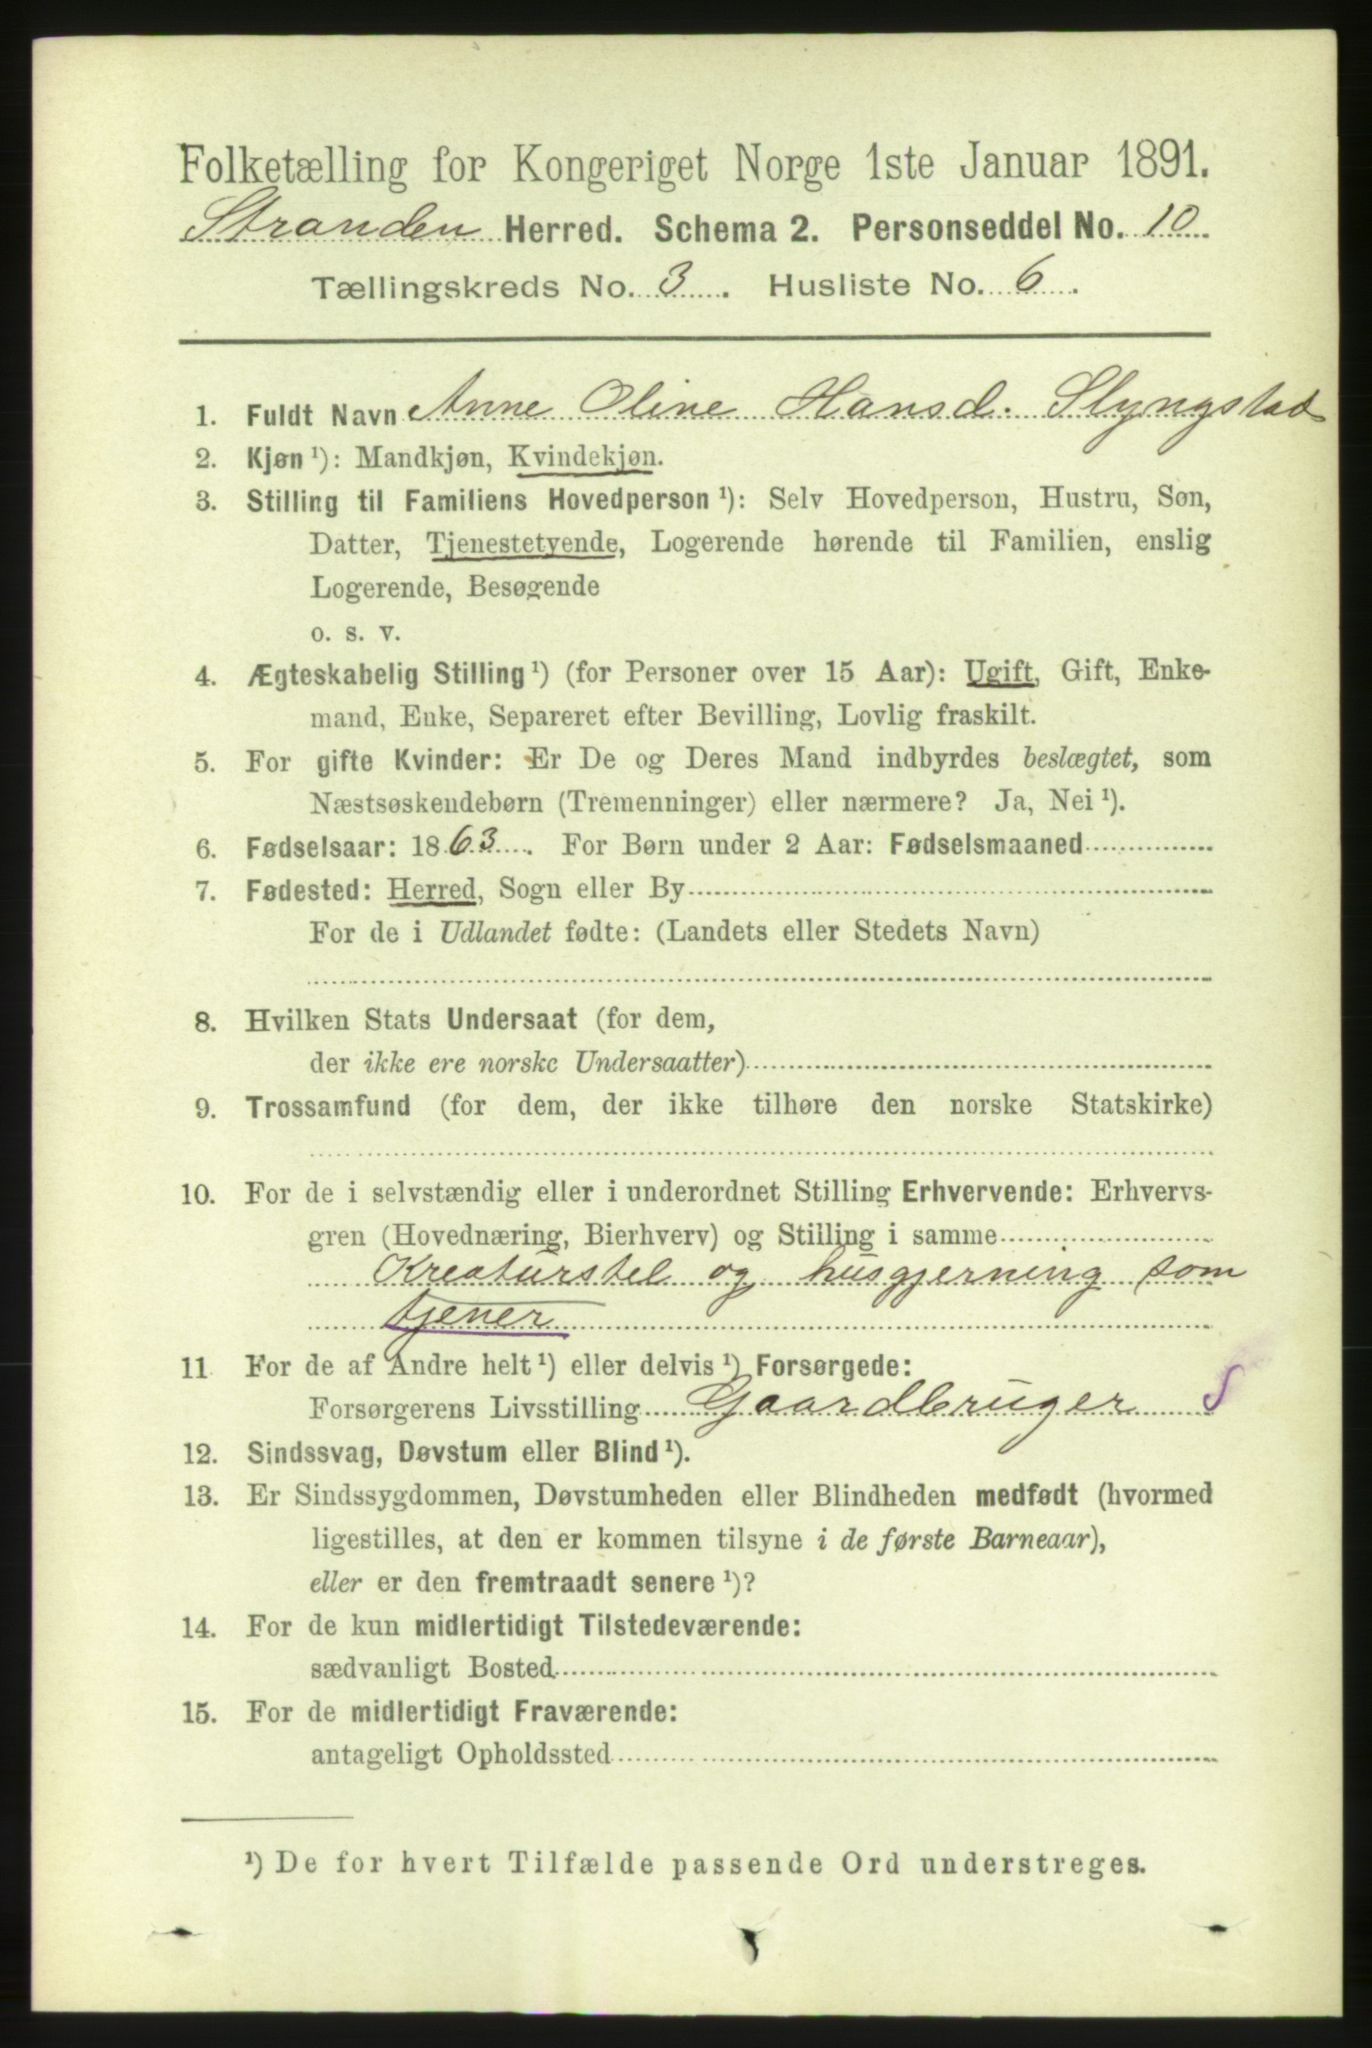 Folketælling for Kongeriget Norge 1ste Januar 1891.
Stranden Herred. Schema 2. Personseddel No. 10
Tællingskreds No. 3. Husliste No. 6.
1. Fuldt Navn Anne Oline Hansd. Slyngstad
2. Kjøn ¹): Mandkjøn, Kvindekjøn.
3. Stilling til Familiens Hovedperson ¹): Selv Hovedperson, Hustru, Søn,
Datter, Tjenestetyende, Logerende hørende til Familien, enslig
Logerende, Besøgende
o. s. v.
4. Ægteskabelig Stilling ¹) (for Personer over 15 Aar): Ugift, Gift, Enke-
mand, Enke, Separeret efter Bevilling, Lovlig fraskilt.
5. For gifte Kvinder: Er De og Deres Mand indbyrdes beslægtet, som
Næstsøskendebørn (Tremenninger) eller nærmere? Ja, Nei ¹).
6. Fødselsaar: 1863. For Børn under 2 Aar: Fødselsmaaned
7. Fødested: Herred, Sogn eller By
For de i Udlandet fødte: (Landets eller Stedets Navn)
8. Hvilken Stats Undersaat (for dem,
der ikke ere norske Undersaatter)
9. Trossamfund (for dem, der ikke tilhøre den norske Statskirke)
10. For de i selvstændig eller i underordnet Stilling Erhvervende: Erhvervs-
gren (Hovednæring, Bierhverv) og Stilling i samme
Kreaturstel og husgjerning som
tjener
11 For de af Andre helt ¹) eller delvis ¹) Forsørgede:
Forsørgerens Livsstilling Gaardbruger S
12. Sindssvag, Døvstum eller Blind ¹).
13. Er Sindssygdommen, Døvstumheden eller Blindheden medfødt (hvormed
ligestilles, at den er kommen tilsyne i de første Barneaar),
eller er den fremtraadt senere ¹)?
14. For de kun midlertidigt Tilstedeværende:
sædvanligt Bosted
15. For de midlertidigt Fraværende:
antageligt Opholdssted
¹) De for hvert Tilfælde passende Ord understreges.